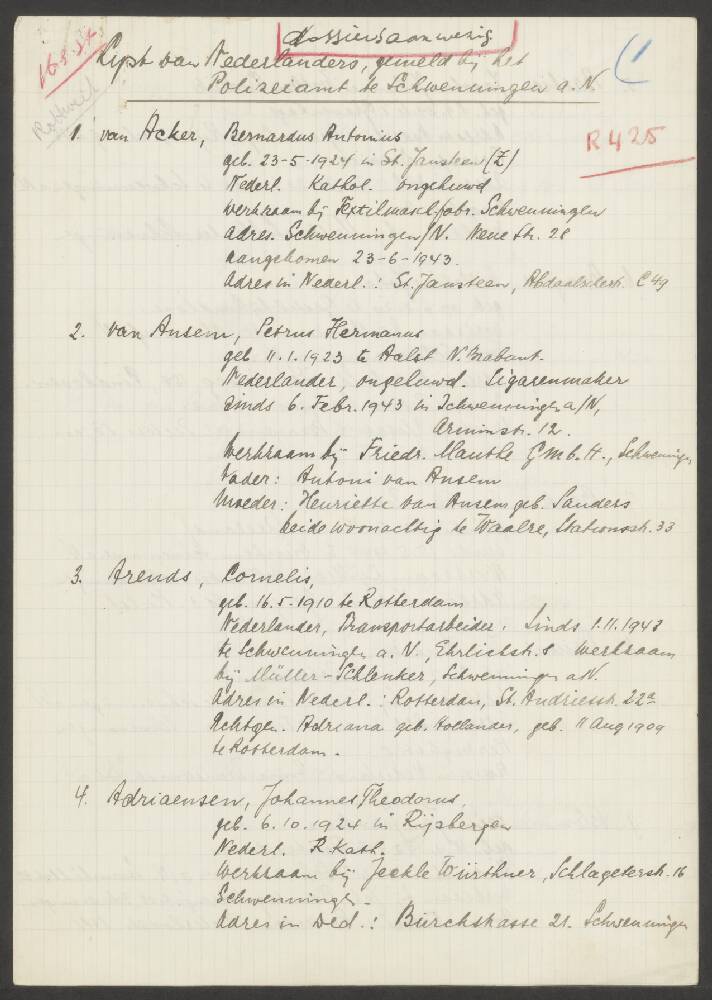 dossiers aanwezig
16.5.
Lijst van Nederlanders, gemeld bij het
Polizeiamt te Schwenningen a. N.
Rottweil
1
R 425
1. van Acker, Bernardus Antonius
geb. 23-5-1924 in St. Jansteen (Z)
Nederl. Kathol. ongehuwd
werkzaam bij Textilmasch.fabr. Schwenningen
adres. Schwenningen/N. Neue Str. 28
aangekomen 23-6-1943.
Adres in Nederl.: St. Jansteen, C 49
2. van Ansem, Petrus Hermanus
geb 11.1.1923 te Aalst N. Brabant.
Nederlander, ongehuwd. Sigarenmaker
Sinds 6. Febr. 1943 in Schwenningen a/N,
Arminstr. 12.
Werkzaam bij Friedr. Mauthe G.m.b.H., Schwenningen
Vader: Antoni van Ansem
Moeder: Henriette van Ansem geb. Sanders
beide woonachtig te Waalre, Stationsstr. 33
3. Arends, Cornelis,
geb. 16.5.1910 te Rotterdam
Nederlander, Transportarbeider. Sinds 1.11.1943
te Schwenningen a. N., Ehrlichstr. 8 werkzaam
bij Müller-Schlenker, Schwenningen a.N.
Adres in Nederl.: Rotterdam, St. Andriesstr. 22a
Echtgen. Adriana geb. Hollander, geb. 11 Aug 1909
te Rotterdam.
4. Adriaensen, Johannes Theodorus
geb. 6.10.1924 in Rijsbergen
Nederl. R. Kath.
Werkzaam bij Jeckle Würthner, Schlageterstr. 16
Schwenningen.
Adres in Ded.: Bürckstrasse 21. Schwenningen